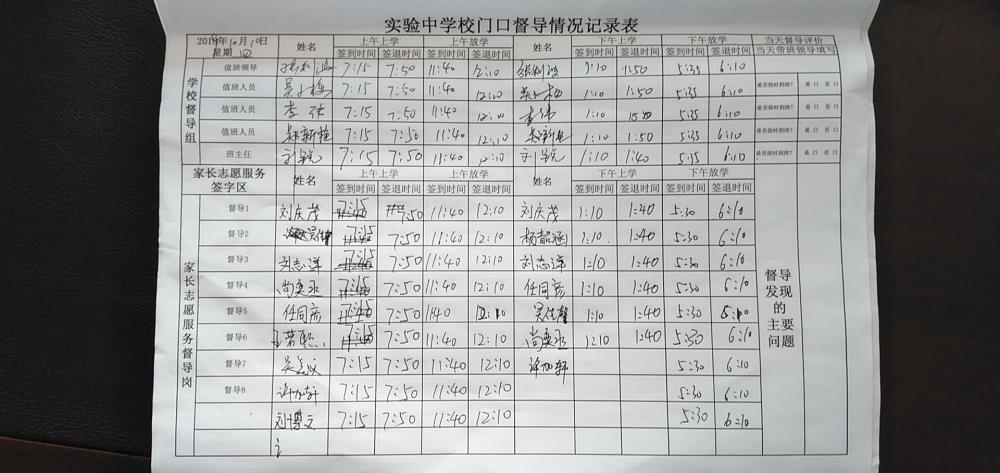 实验中学校门口督导情况记录表
2019年10月10日
星期 四
姓名 上午上学 上午放学 姓名 下午上学 下午放学 当天督导评价
签到时间 签退时间 签到时间 签退时间 签到时间 签退时间 签到时间 签退时间 当天带班领导填写
学校督导组
值班领导 7:15 7:50 11:40 12:10 1:10 1:50 5:35 6:10
值班人员 7:15 7:50 11:40 12:10 1:10 1:50 5:35 6:10 是否按时到岗? 是 口 否 口
值班人员 7:15 7:50 11:40 12:10 李伟 1:10 5:35 6:10 是否按时到岗? 是 口 否 口
值班人员 7:15 7:50 11:40 12:10 1:10 1:50 5:35 6:10 是否按时到岗? 是 口 否 口
班主任 刘锐 7:15 7:50 11:40 12:10 刘锐 1:10 1:40 5:15 6:10 是否按时到岗? 是 口 否 口
家长志愿服务
签字区
姓名 上午上学 上午放学 姓名 下午上学 下午放学
签到时间 签退时间 签到时间 签退时间 签到时间 签退时间 签到时间 签退时间
家长志愿服务督导岗
督导1 刘庆茂 7:15 7:50 11:40 12:10 刘庆茂 1:10 1:40 5:30 6:10
督导2 7:15 7:50 11:40 12:10 杨韶涵 1:10 1:40 5:30 6:10
督导3 刘志洋 7:15 7:50 11:40 12:10 刘志洋 1:10 1:40 5:30 6:10
督导4 尚奕丞 7:15 7:50 11:40 12:10 任同彦 1:10 1:40 5:30 6:10
督导5 任同彦 7:15 7:50 11:40 12:10 1:10 1:40 5:30
督导6 7:15 7:50 11:40 12:10 尚奕丞 1:10 1:40 5:30 6:10
督导7 7:15 7:50 11:40 12:10 许加轩 5:30 6:10
督导8 许加轩 7:15 7:50 11:40 12:10 5:30 6:10
刘博文 7:15 7:50 11:40 12:10 5:30 6:10
督导
发现
的
主要
问题